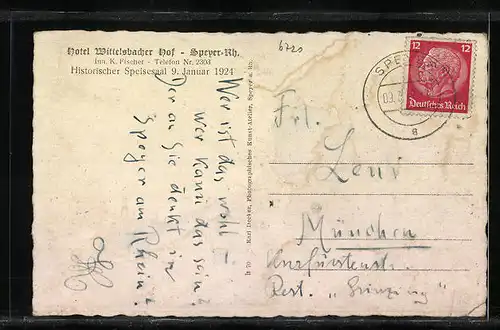 Hotel Wittelsbacher Hof - Speyer-Rh.
Inh. K. Fischer - Telefon Nr. 2304
Historischer Speisesaal 9. Januar 1924
Wer ist das wohl –
wer kann das sein?
Der an Sie denkt in
Speyer am Rhein?
It 70 Karl Decker, Photographisches Kunst-Atelier, Speyer a. Rh.
6720
SPE
09.
a
12 12
Deutsches Reich
Frl.
Leni
München
Kurfürstenstr.
Rest. „Grinzing“